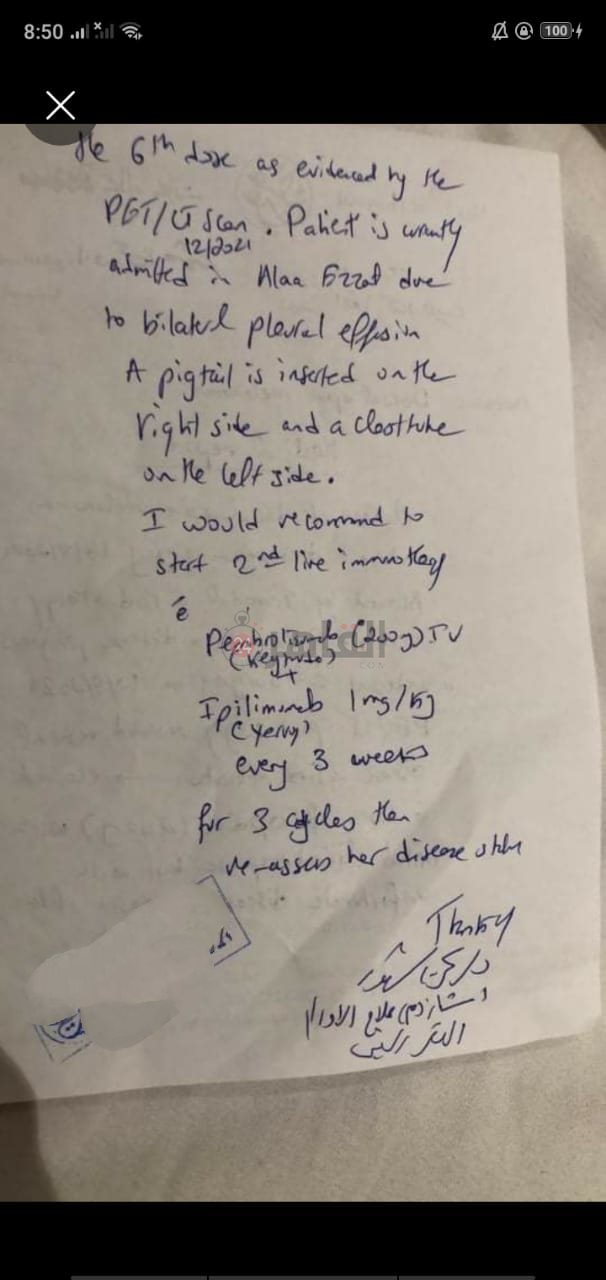 8:50
100
the 6th dose as evidenced by the
PET/CT scan . Patient is currently
12/2021
admitted in Alaa Ezzat due
to bilateral pleural effusion
A pigtail is inserted on the
right side and a chest tube
on the left side.
I would recommend to
start 2nd line immunotherapy
c̄
Pembrolizumab (200g) IV
(Keytruda)
+
Ipilimumab 1mg/kg
(Yervoy)
every 3 weeks
for 3 cycles then
re-assess her disease
علاج الاورام